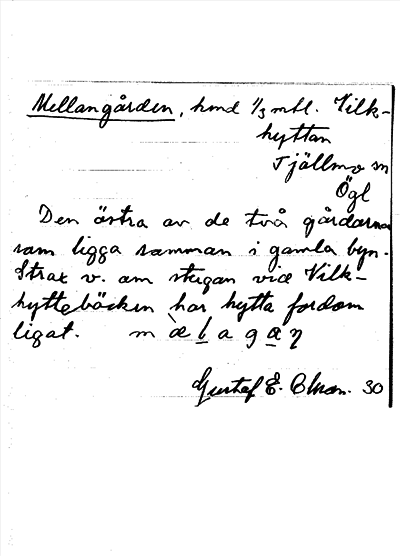 Mellangården, hmd 1/3 mtl. Vilk-
hyttan
Tjällmo sn
Ögl
Den östra av de två gårdarna
som ligga samman i gamla byn.
Strax v. om stugan vid Vilk-
hyttebäcken har hytta fordom
legat. m æ l a g a ŋ
Gustaf E. 30